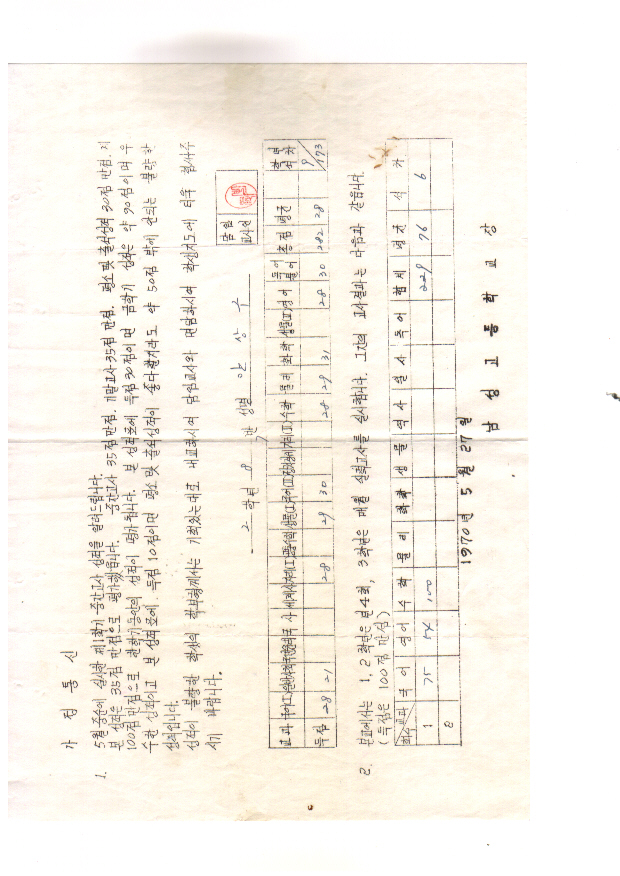 가 정 통 신
1. 5월 중순에 실시한 제1학기 중간고사 성적을 알려드립니다.
본 성적은 35점 만점으로 평가했읍니다. 중간고사 35점만점. 기말고사 35점 만점. 평소 및 출석성적 30점 만점. 계
100점 만점으로 한학기동안의 성적이 평가됩니다. 본 성적표에 득점 30점이면 금학기 성적은 약 90점이며 우
수한 성적이고 본 성적표에 득점 10점이면 평소 및 출석성적이 좋다할지라도 약 50점 밖에 안되는 불량한
성적입니다.
성적이 불량한 학생의 학부형께서는 기회있는대로 내교하시여 담임교사와 면담하시여 학생지도에 더욱 힘써주
시기 바랍니다.
2 학년 8 반 성명 안상수
담임
교사인
교과 국어(I) 국사 세계사 지리(I) 생물(I) 국어(II) 수학 물리 화학 생물(II) 영어 독어 불어 총점 평균 학년석차
득점 28 21 28 29 30 28 29 31 28 30 282 28 9/173
2. 본교에서는 1, 2학년은 년4회, 3학년은 매월 실력고사를 실시합니다. 그간의 고사결과는 다음과 같읍니다.
(득점은 100점 만점)
회수 교과 국어 영어 수학 물리 화학 생물 역사 일사 독어 합계 평균 석차
1 75 54 100 229 76 6
2
1970년 5월 27일
남성고등학교장